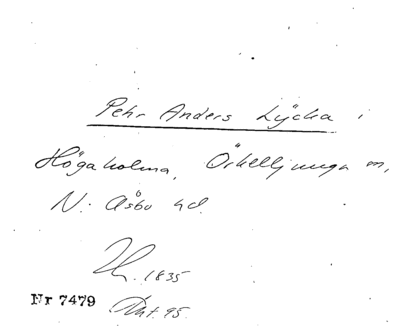 Pehr Anders Lÿcka i
Högaholma, Örkelljunga m,
N. Åsbo hd.
1835
Nr 7479 Ant. 95.